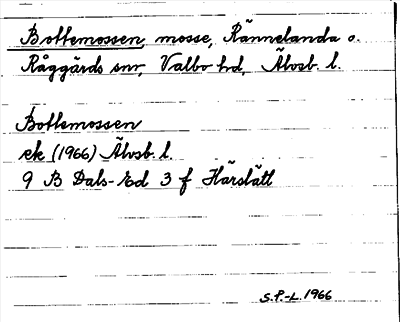 Bottemossen, mosse, Rännelanda o.
Råggärds snr, Valbo hd, Älvsb. l.
Bottemossen
ek (1966) Älvsb. l.
9 B Dals-Ed 3 f Härslätt
S.P.-L. 1966